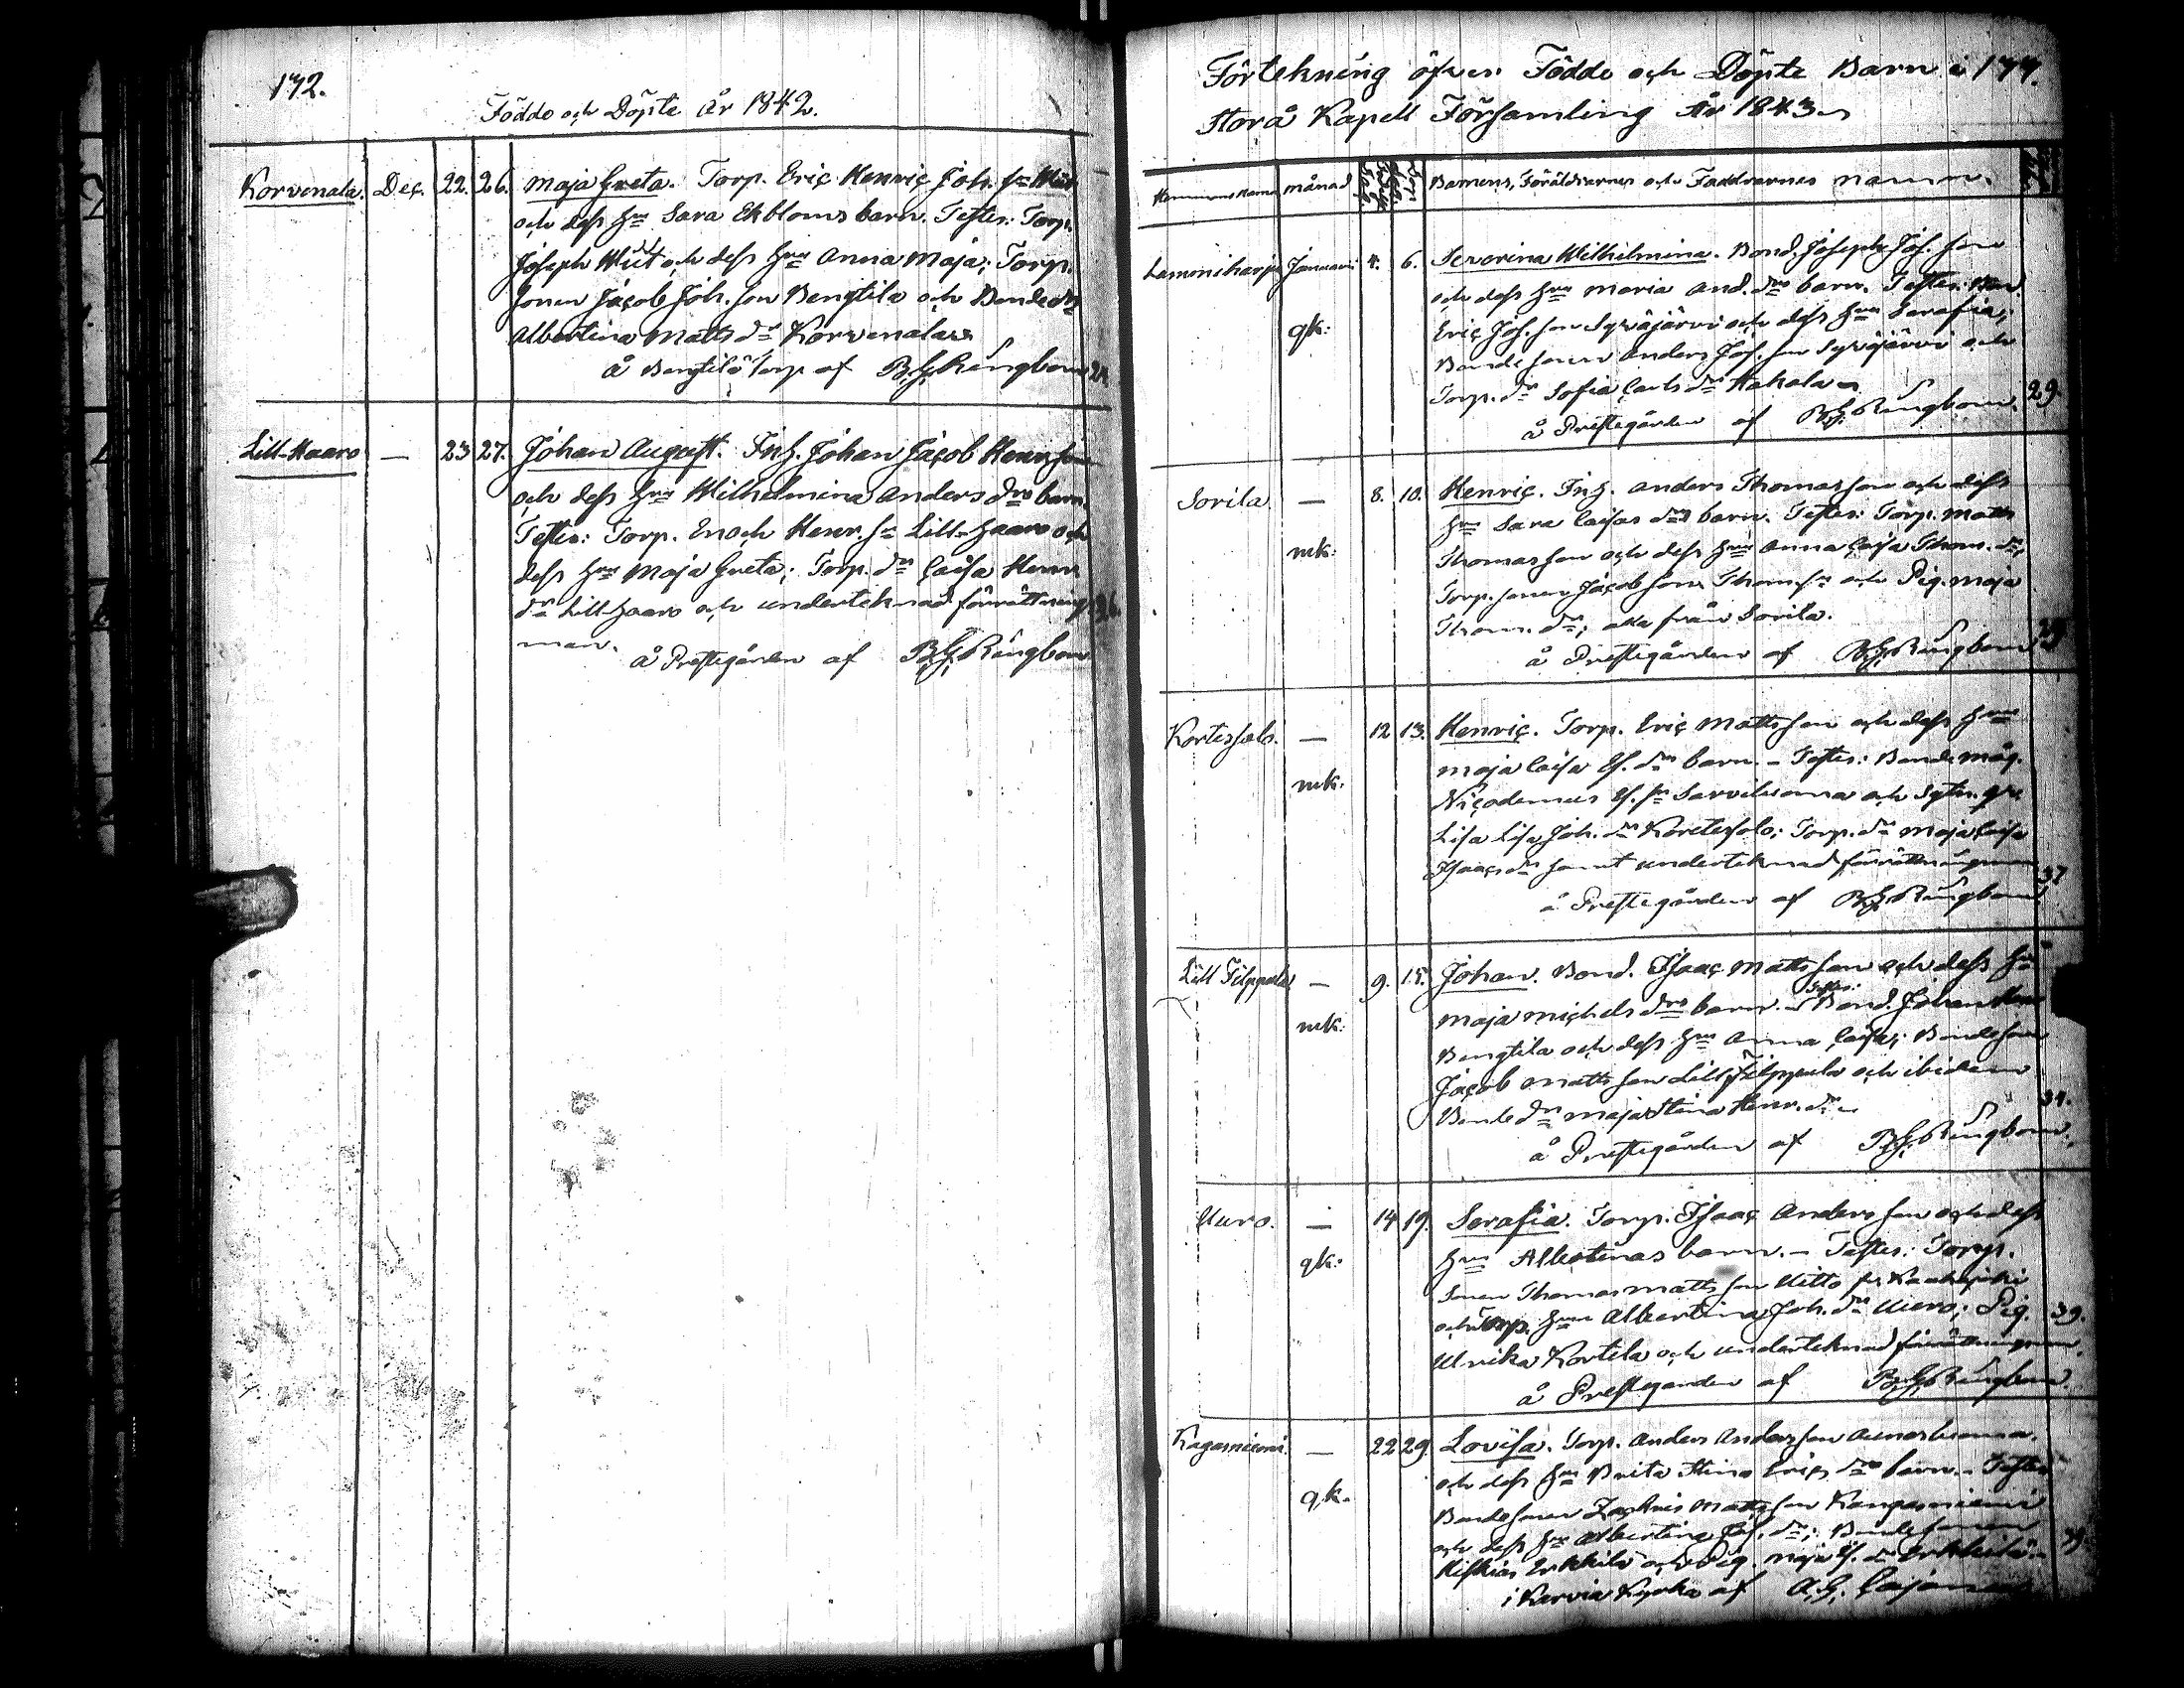 172.
Födde och Döpte År 1842.
Korvenala. Dec. 22. 26. Maja Greta. Torp. Eric Henric Joh. sn
och dess Hu Sara Ekbloms barn. Testes: Torp.
Joseph och dess Hu Anna Maja; Torp.
sonen Jacob Joh. son Bengtila och Bonde dr
Albertina Matts dr Korvenala
å Bengtilä Torp af B.G. Ringbom
Lill-Haaro — 23 27. Johan August. Inh. Johan Jacob Henr. son
och dess Hu Wilhelmina Anders drs barn.
Testes: Torp. Enoch Henr. sn Lill-Haaro och
dess Hu Maja Greta; Torp. dr Caisa Henr.
dr Lill-Haaro och underteknad förrättnings 36.
man.
å Prestegården af B.G. Ringbom
Förtekning öfver Födde och Döpte Barn i 177.
Storå Kapell Församling År 1843
Hemmans Namn månad Barnens, Föräldrarnes och Faddrarnes namn.
Lamminharju Januarii 4. 6. Severina Wilhelmina. Bond. Joseph Jos. son
och dess Hu Maria And. drs barn. Testes: Bond.
gk: Eric Joh. son Syväjärvi och dess Hu Serafia;
Bonde sonen Anders Jos. son Syväjärvi och
Torp. dr Sofia Carls dr Hakala
å Prestegården af B.G. Ringbom. 29.
Sorila. — 8. 10. Henric. Inh. Anders Thomas son och dess
Hu Sara Caisas drs barn. Testes: Torp. Matts
mk: Thomas son och dess Hu Anna Caisa Thom. dr;
Torp. sonen Jacob Thom. sn och Pig. Maja
Thom. dr; alla från Sorila.
å Prestegården af B.G. Ringbom
Kortessalo. — 12 13. Henric. Torp. Eric Matts son och dess Hu
Maja Caisa Es. drs barn. – Testes: Bonde måg.
mk: Nicodemus Es. sn Sarviluoma och
Lisa Lisa Joh. dr Kortesalo; Torp. dr Maja Caisa
Isaacs dr samt underteknad förrättningsman
å Prestegården af B.G. Ringbom 37
Lill Filppula — 9. 15. Johan. Bond. Isaac Matts son och dess Hu
Testes:
Maja Michels drs barn. – Bond. Johan Henr
mk: Bengtila och dess Hu Anna Caisa; Bonde son
Jacob Matts son Lill Filppula och ibidem
Bonde dr Maja Stina Henr. dr
å Prestegården af B.G. Ringbom. 34.
Uuro. — 14 19. Serafia. Torp. Isaac Anders son och dess
gk: Hu Albertinas barn. – Testes: Torp.
sonen Thomas Matts son
och Torp. Hu Albertina Joh. dr Uuro; Pig. 39.
Ulrika Kortela och underteknad förrättningsman.
å Prestegården af B.G. Ringbom.
Kagasniemi. — 22 29. Lovisa. Torp. Anders Anders son Aunesluoma.
och dess Hu Brita Stina Erics drs barn. – Testes
gk. Bonde sonen Zachris Matts son Kangasniemi
och dess Hu Albertina dr; Bonde sonen
Hiskias Erkkilä och Pig. Maja Es. dr Erkkilä.
i Karvia Kyrka af A.G. Cajan